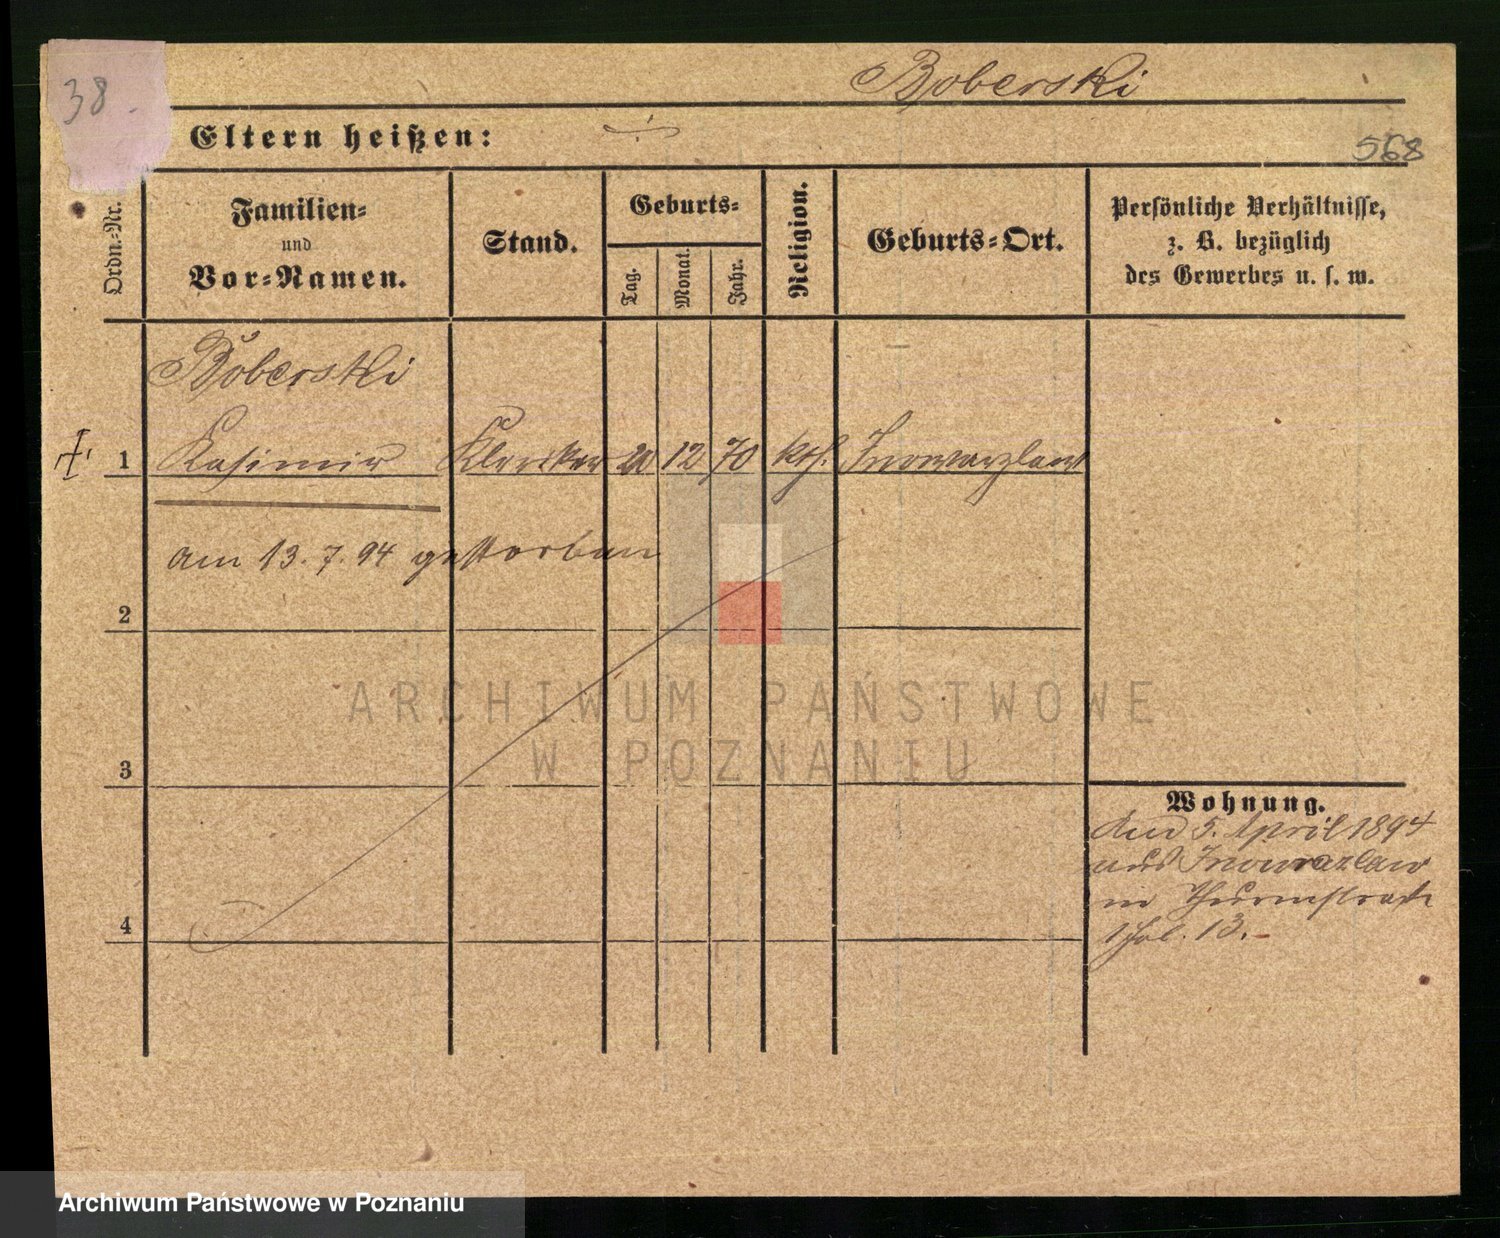 38.
Boberski
Eltern heißen:
568
Ordn.-Nr.
Familien-
und
Vor-Namen.
Stand.
Geburts-
Tag.
Monat.
Jahr.
Religion.
Geburts-Ort.
Persönliche Verhältnisse,
z. B. bezüglich
des Gewerbes u. s. w.
Boberski
1 Kasimir Kleriker 12 70 kth. Inowrazlaw
am 13.7.94 gestorben
2
ARCHIWUM PAŃSTWOWE
W POZNANIU
3
Wohnung.
5. April 1894
aus Inowrazlaw
in Thurmstraße
13.
4
Archiwum Państwowe w Poznaniu